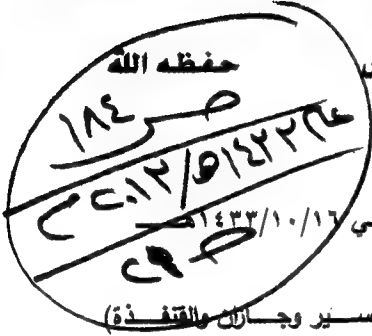 حفظه الله
ص ١٨٤
عام ١٤٣٣هـ/٢٠١٢م
ي ١٤٣٣/١٠/١٦هـ
ص ٢٩
سير وجازان والقنفذة)